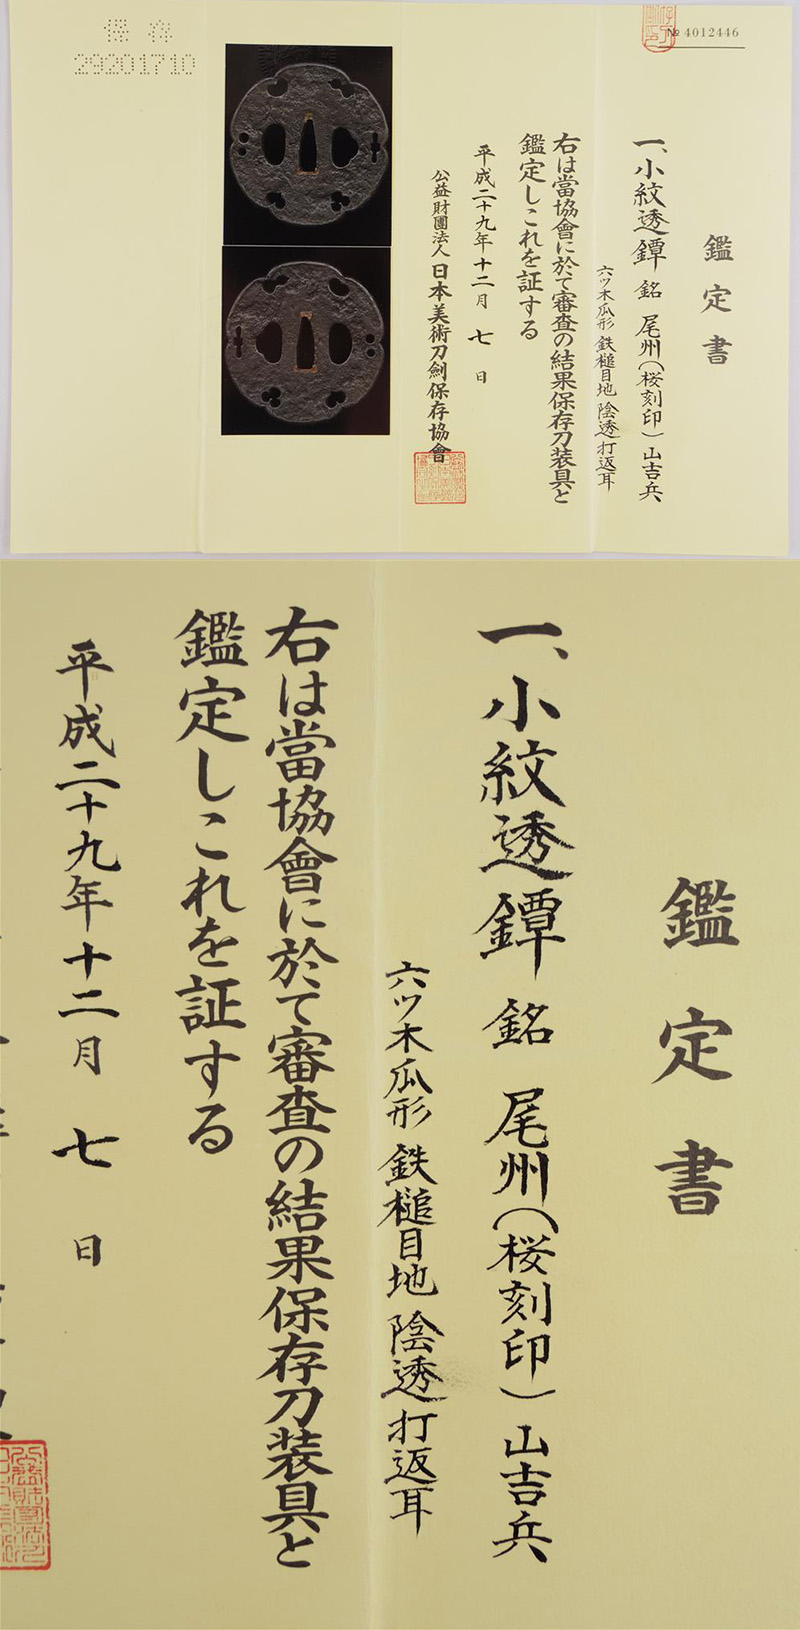 保存
29201710
№ 4012446
鑑定書
一、小紋透鐔 銘 尾州(桜刻印)山吉兵
六ツ木瓜形 鉄槌目地 陰透 打返耳
右は當協會に於て審査の結果保存刀装具と
鑑定しこれを証する
平成二十九年十二月 七 日
公益財團法人 日本美術刀劍保存協會
鑑定書
一、小紋透鐔 銘 尾州(桜刻印)山吉兵
六ツ木瓜形 鉄槌目地 陰透 打返耳
右は當協會に於て審査の結果保存刀装具と
鑑定しこれを証する
平成二十九年十二月 七 日